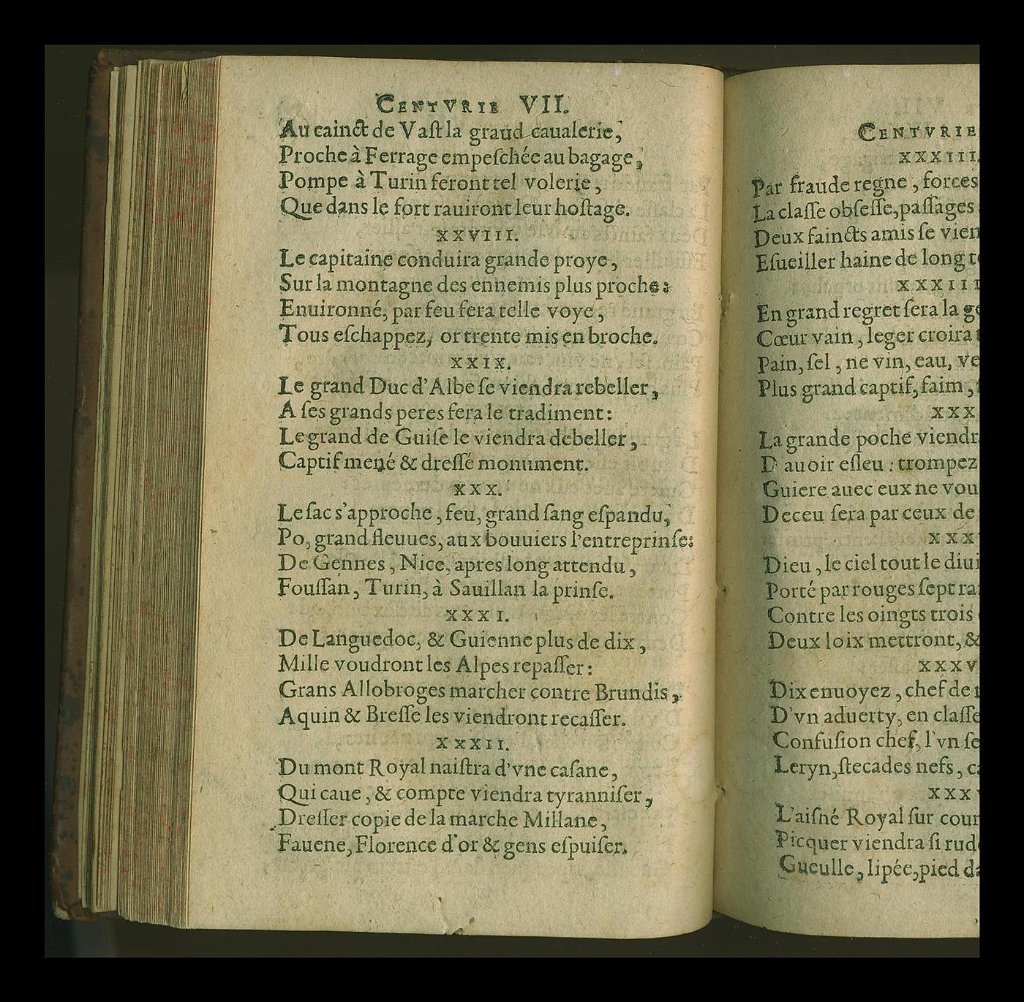 CENTVRIE VII.
Au cainct de Vaſt la graud caualerie,
Proche à Ferrage empeſchée au bagage,
Pompe à Turin feront tel volerie,
Que dans le fort rauiront leur hoſtage.
XXVIII.
Le capitaine conduira grande proye,
Sur la montagne des ennemis plus proche:
Enuironné, par feu fera telle voye,
Tous eſchappez, or trente mis en broche.
XXIX.
Le grand Duc d'Albe ſe viendra rebeller,
A ſes grands peres fera le tradiment:
Le grand de Guiſe le viendra debeller,
Captif mené & dreſſé monument.
XXX.
Le ſac s'approche, feu, grand ſang eſpandu,
Po, grand fleuues, aux bouuiers l'entreprinſe:
De Gennes, Nice, apres long attendu,
Fouſſan, Turin, à Sauillan la prinſe.
XXXI.
De Languedoc, & Guienne plus de dix,
Mille voudront les Alpes repaſſer:
Grans Allobroges marcher contre Brundis,
Aquin & Breſſe les viendront recaſſer.
XXXII.
Du mont Royal naiſtra d'vne caſane,
Qui caue, & compte viendra tyranniſer,
Dreſſer copie de la marche Millane,
Fauene, Florence d'or & gens eſpuiſer.
CENTVRIE
XXXIII.
Par fraude regne, forces
La claſſe obſeſſe, paſſages
Deux faincts amis ſe vien
Eſueiller haine de long t
XXXIII
En grand regret ſera la g
Cœur vain, leger croira
Pain, ſel, ne vin, eau, ve
Plus grand captif, faim,
XXX
La grande poche viendr
D auoir eſleu: trompez
Guiere auec eux ne vou
Deceu ſera par ceux de
XXX
Dieu, le ciel tout le diui
Porté par rouges ſept ra
Contre les oingts trois
Deux loix mettront, &
XXXV
Dix enuoyez, chef de
D'vn aduerty, en claſſe
Confuſion chef, l'vn ſe
Leryn, ſtecades nefs, c
XXX
L'aiſné Royal ſur cour
Picquer viendra ſi rud
Gueulle, lipée, pied d